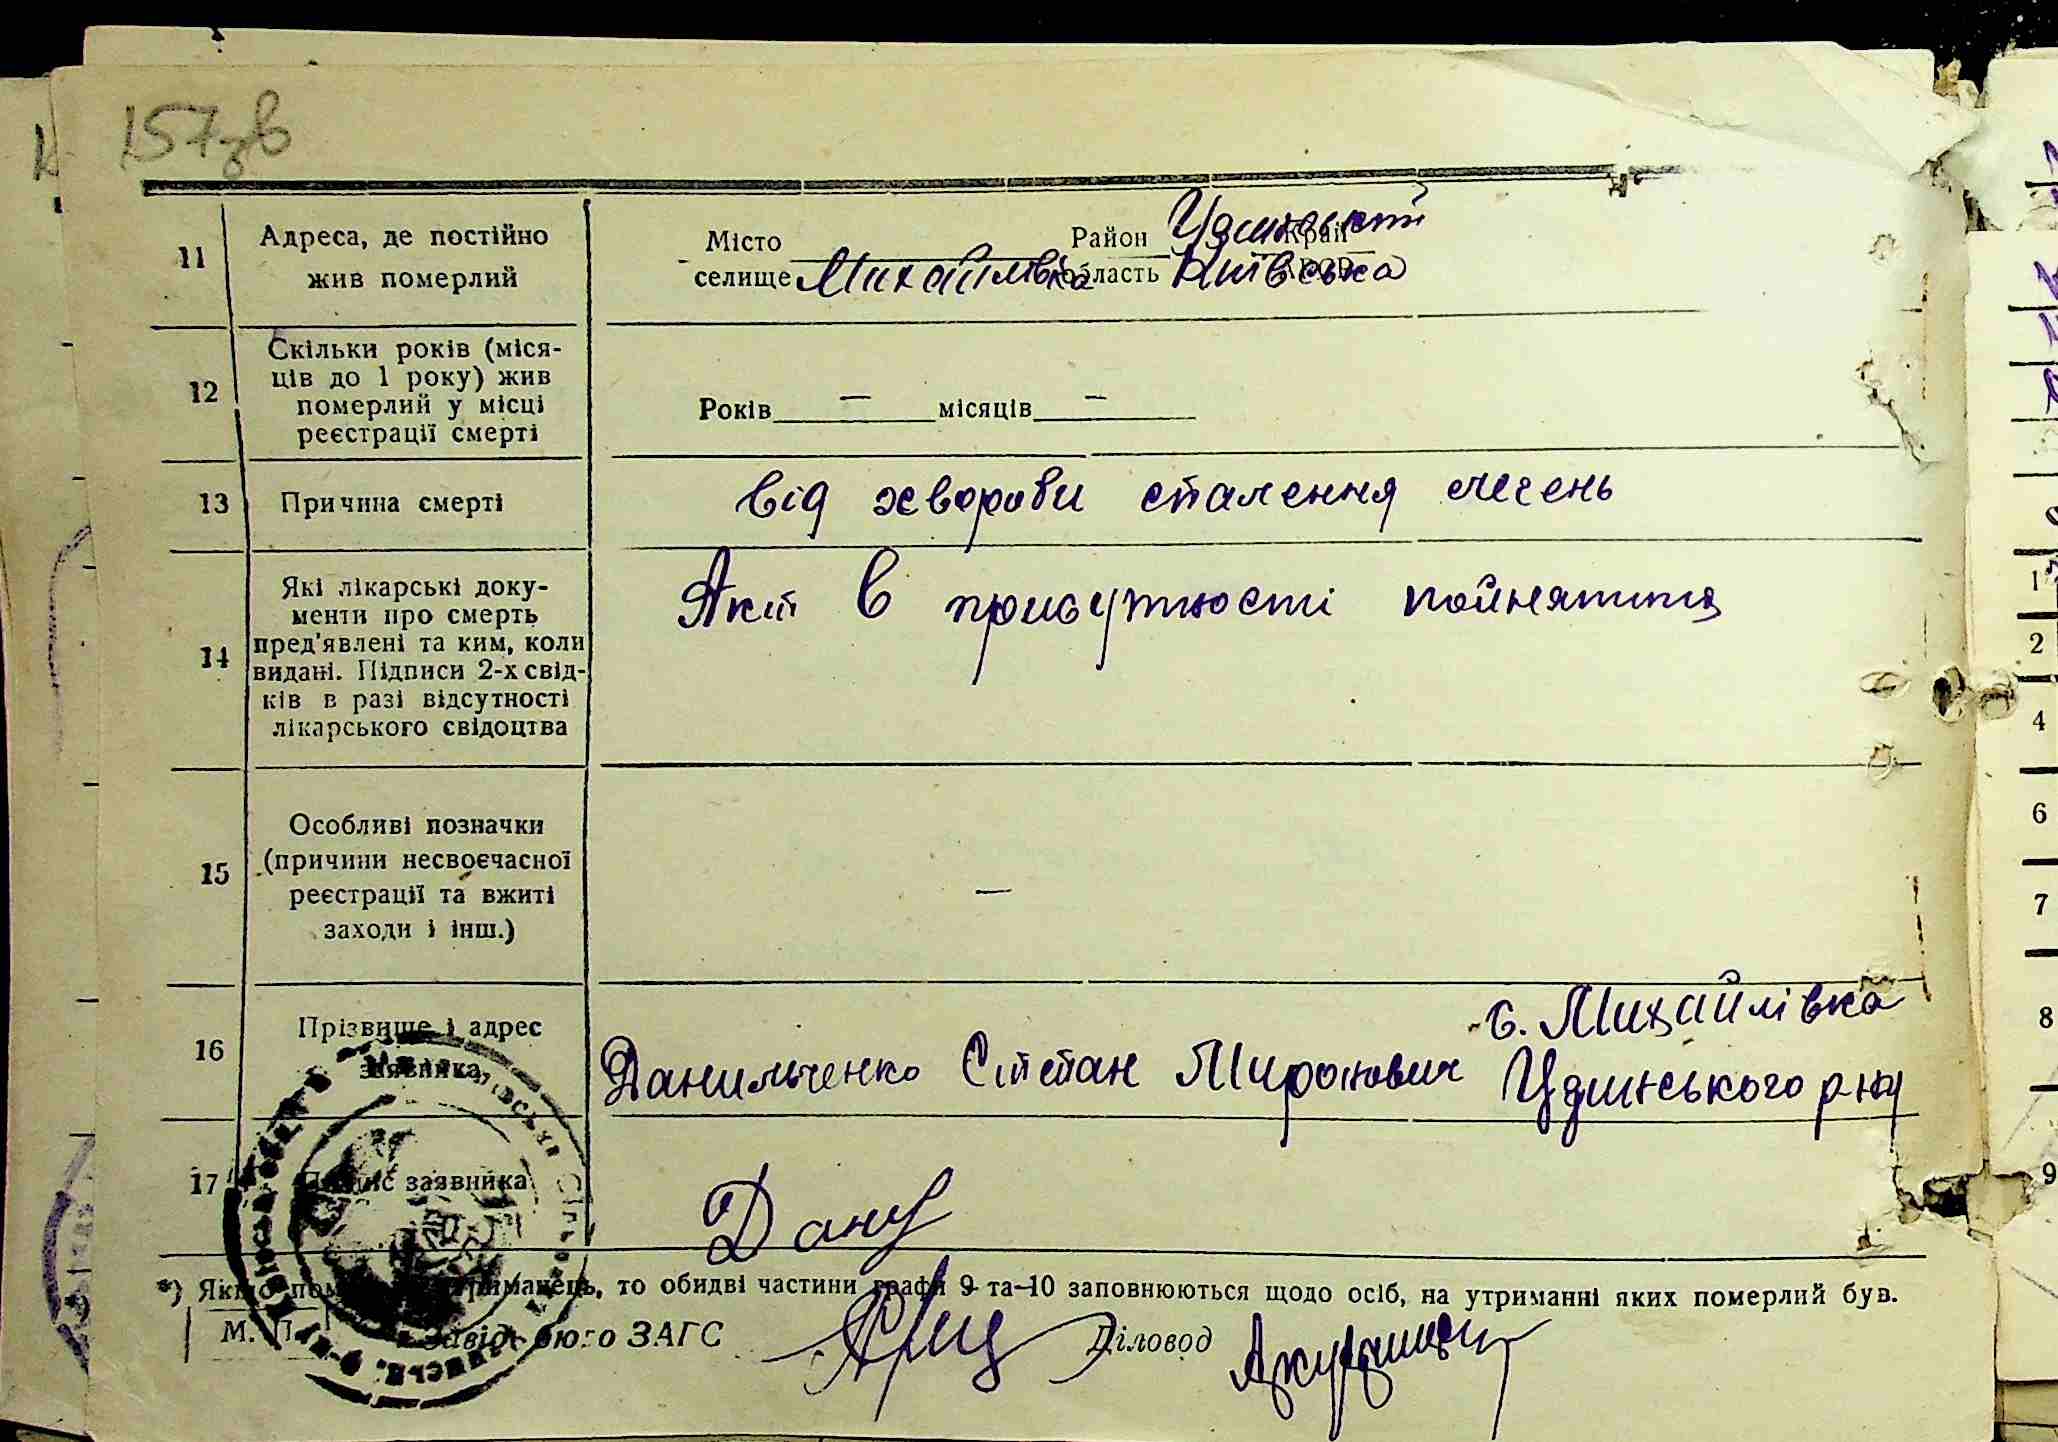 157зв
11 Адреса, де постійно жив померлий
Місто Район Край
селище Михайлівка область Київська АРСР
12 Скільки років (міся-
ців до 1 року) жив
померлий у місці
реєстрації смерті
Років — місяців —
13 Причина смерті
від хвороби спалення легень
14 Які лікарські доку-
менти про смерть
пред'явлені та ким, коли
видані. Підписи 2-х свід-
ків в разі відсутності
лікарського свідоцтва
Акт в присутності
15 Особливі позначки
(причини несвоєчасної
реєстрації та вжиті
заходи і інш.)
—
16 Прізвище і адрес
заявника
с. Михайлівка
Данильченко Степан Миронович р-ну
17 Підпис заявника
Дану
*) Якщо утриманець, то обидві частини графи 9 та 10 заповнюються щодо осіб, на утриманні яких померлий був.
М. П. Завід. бюро ЗАГС Діловод